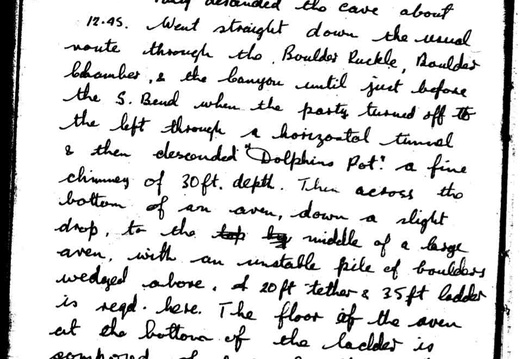 descended the cave about
12.45. Went straight down the usual
route through the Boulder Ruckle, Boulder
Chamber, & the Canyon until just before
the S. Bend when the party turned off to
the left through a horizontal tunnel
& then descended "Dolphins Pot." a fine
chimney of 30ft. depth. Then across the
bottom of an aven, down a slight
drop, to the top by middle of a large
aven, with an unstable pile of boulders
wedged above. A 20ft tether & 35ft ladder
is reqd. here. The floor of the aven
at the bottom of the ladder is
composed of